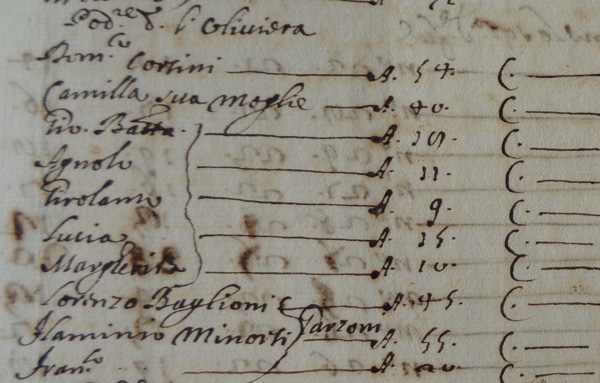 Pod.re d. l'Oliviera
Dom.co Corsini A. 54. C.
Camilla sua Moglie A. 40. C.
Gio. Batta. A. C.
Agnolo A. 11. C.
Girolamo A. 9. C.
Lucia A. 15. C.
Margherita A. 10. C.
Lorenzo Baglioni A. 45. C.
Flaminio Minorti Garzoni A. 55. C.
Fran.co A. 20. C.